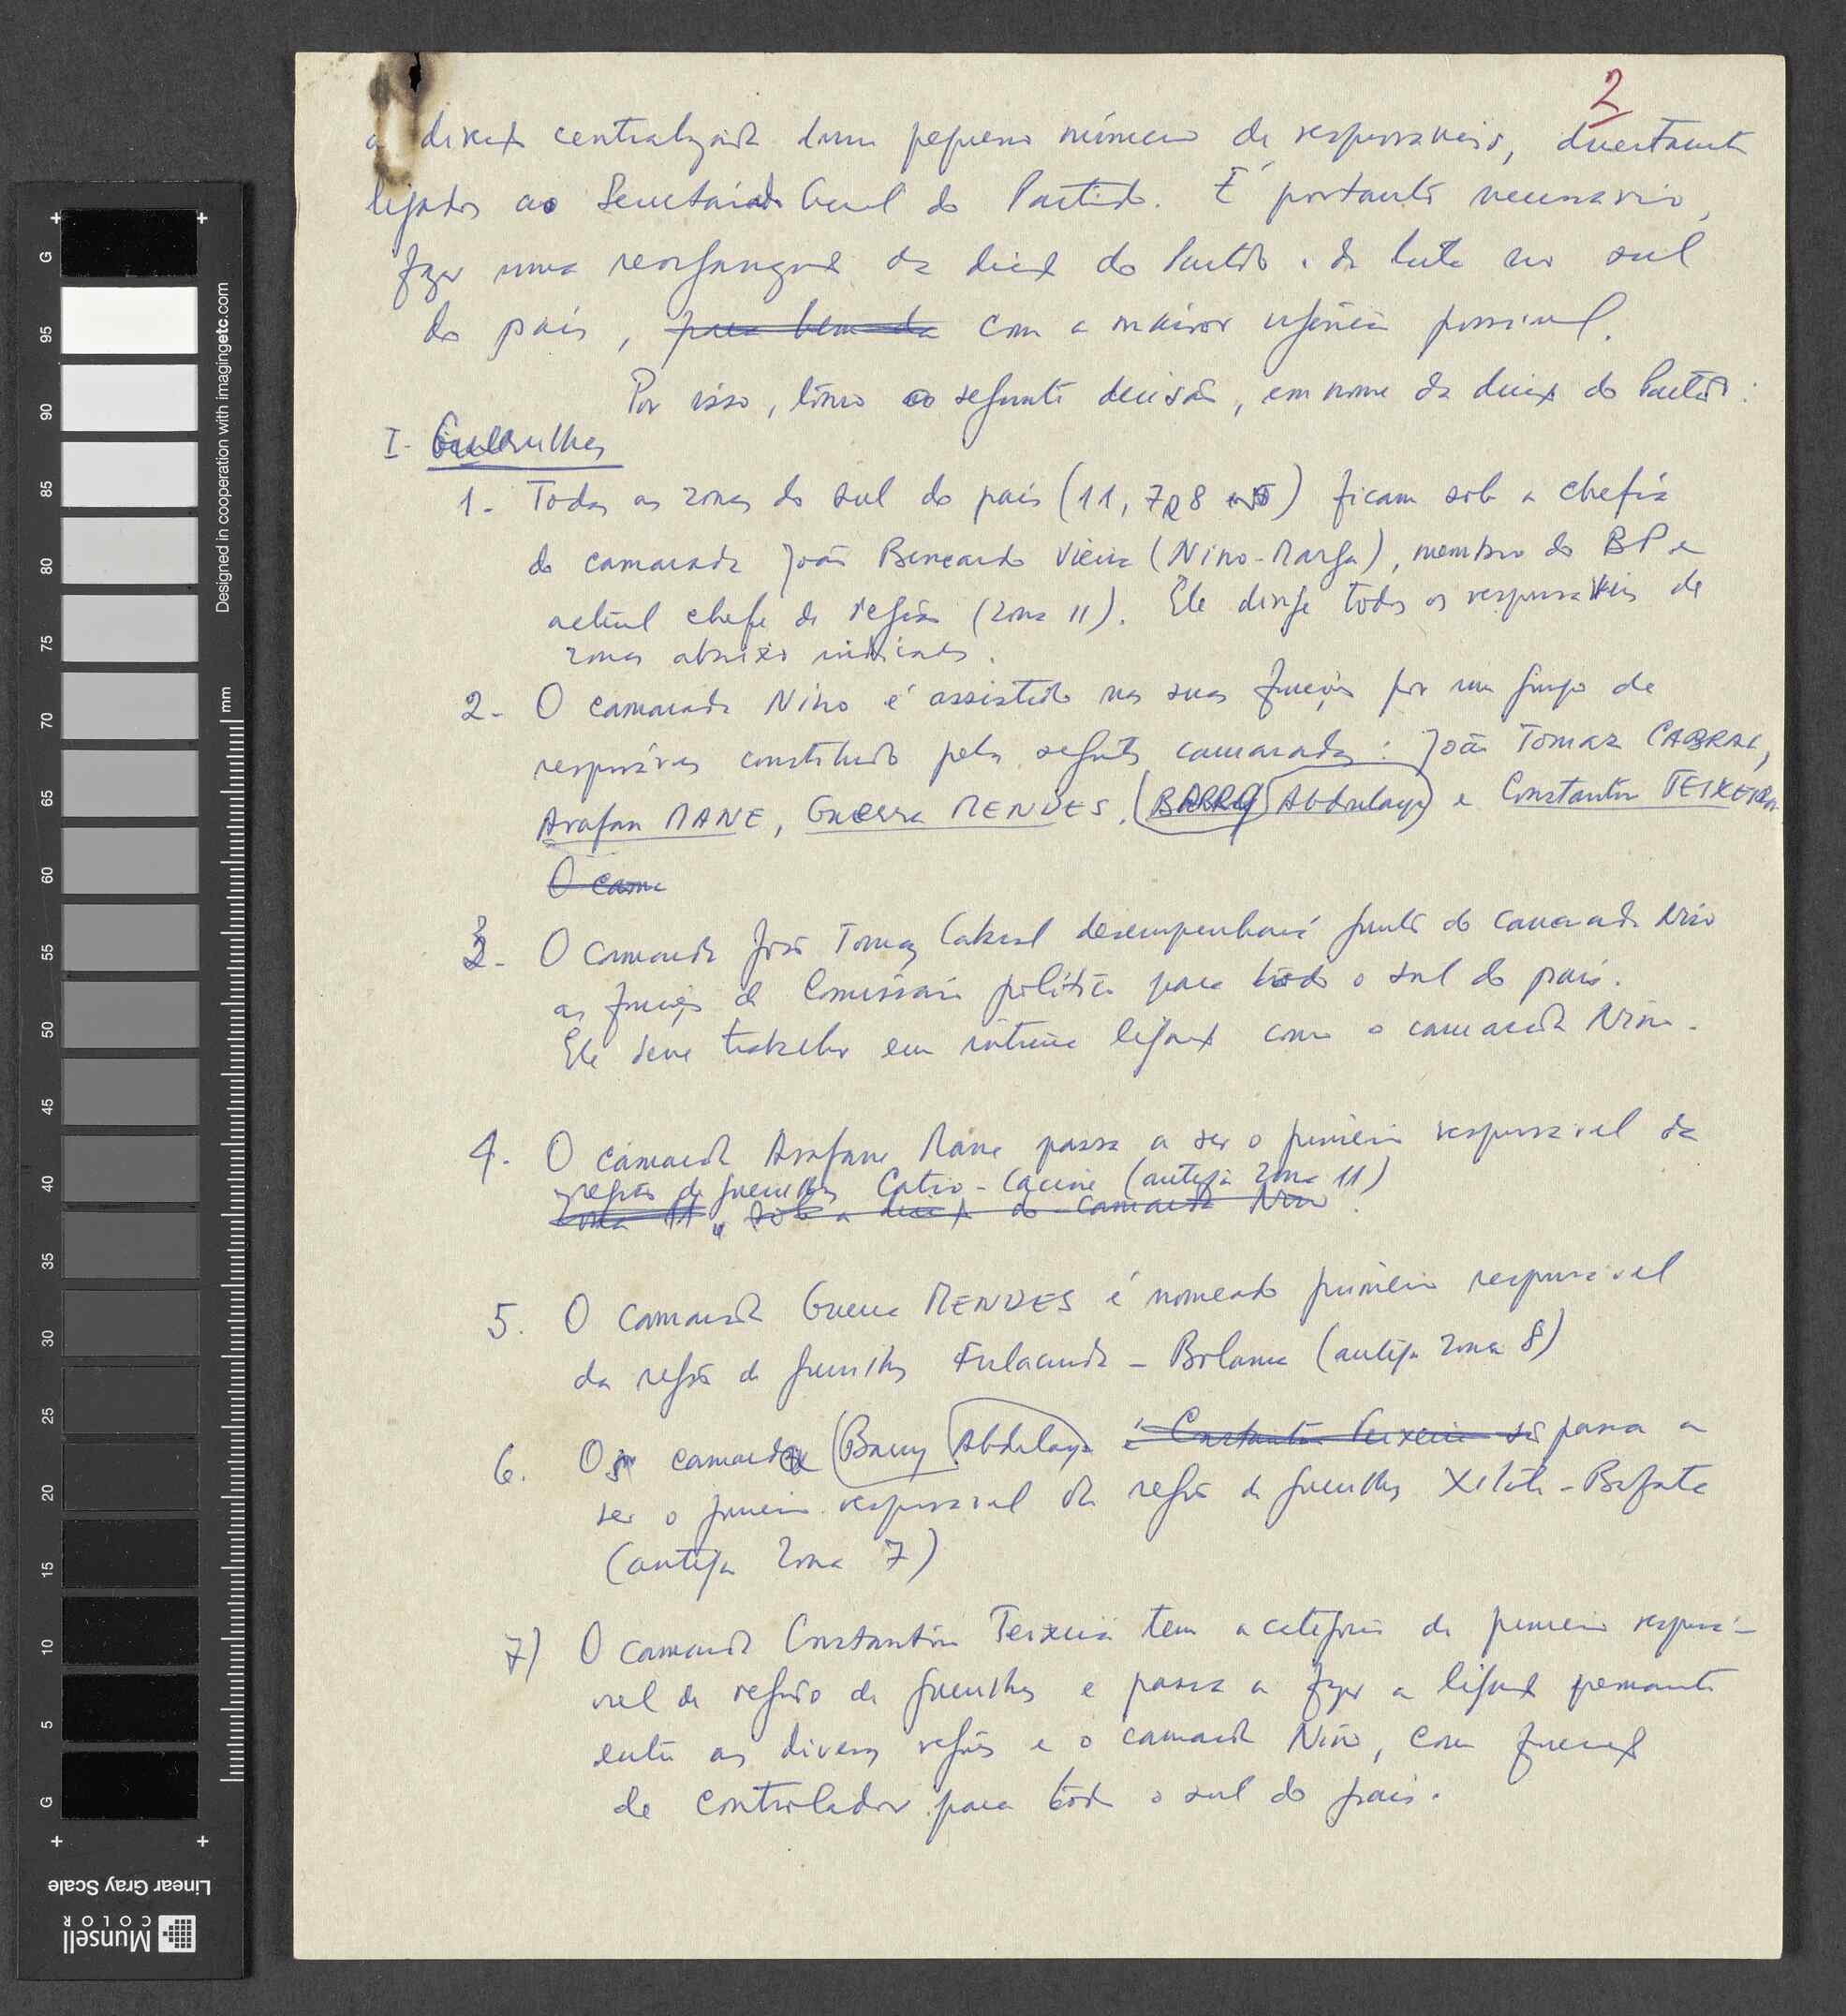 2
a direcç centralizada dum pequeno número de responsáveis, directamente
ligados ao Secretariado Geral do Partido. É portanto necessário,
fazer uma reorganizaç da direcç do Partido e da luta no sul
do país, para bem da com a maior urgência possível.
Por isso, tomo a seguinte decisão, em nome da direcç do Partido:
I- Guerrilhas
1. Todas as zonas do sul do país (11, 7 e 8) ficam sob a chefia
do camarada João Bernardo Vieira (Nino-Marga), membro do BP e
actual chefe de região (zona 11). Ele dirige todos os responsáveis de
zonas abaixo indicados.
2- O camarada Nino é assistido nas suas funções por um grupo de
responsáveis constituido pelos seguintes camaradas: João Tomaz CABRAL,
Arafan MANE, Guerra MENDES, (BARRY Abdulaye) e Constantino TEIXEIRA
O cama
3- O camarada João Tomaz Cabral desempenhará junto do camarada Nino
as funções de Comissário político para todo o sul do país.
Ele deve trabalhar em íntima ligaç com o camarada Nino.
4. O camarada Arafane Mane passa a ser o primeiro responsavel da
região de guerrilhas Catio-Cacine (antiga zona 11)
zona 11, sob a direcç do camarada Nino.
5. O camarada Guerra MENDES é nomeado primeiro responsável
da região de guerrilhas Fulacunda - Bolama (antiga zona 8)
6. O camarada (Barry Abdulaye é Constantino Teixeira são passa a
ser o primeiro responsavel da região de guerrilhas Xitole-Bafata
(antiga zona 7)
7) O camarada Constantino Teixeira tem a categoria de primeiro responsá-
vel de região de guerrilhas e passa a fazer a ligaç permanente
entre as diversas regiões e o camarada Nino, com funcç
de controlador para todo o sul do país.
Designed in cooperation with imagingetc.com
mm
G 95 90 85 80 75 70 65 60 55 50 45 40 35 30 25 20 15 10 5 G
Linear Gray Scale
Munsell
COLOR